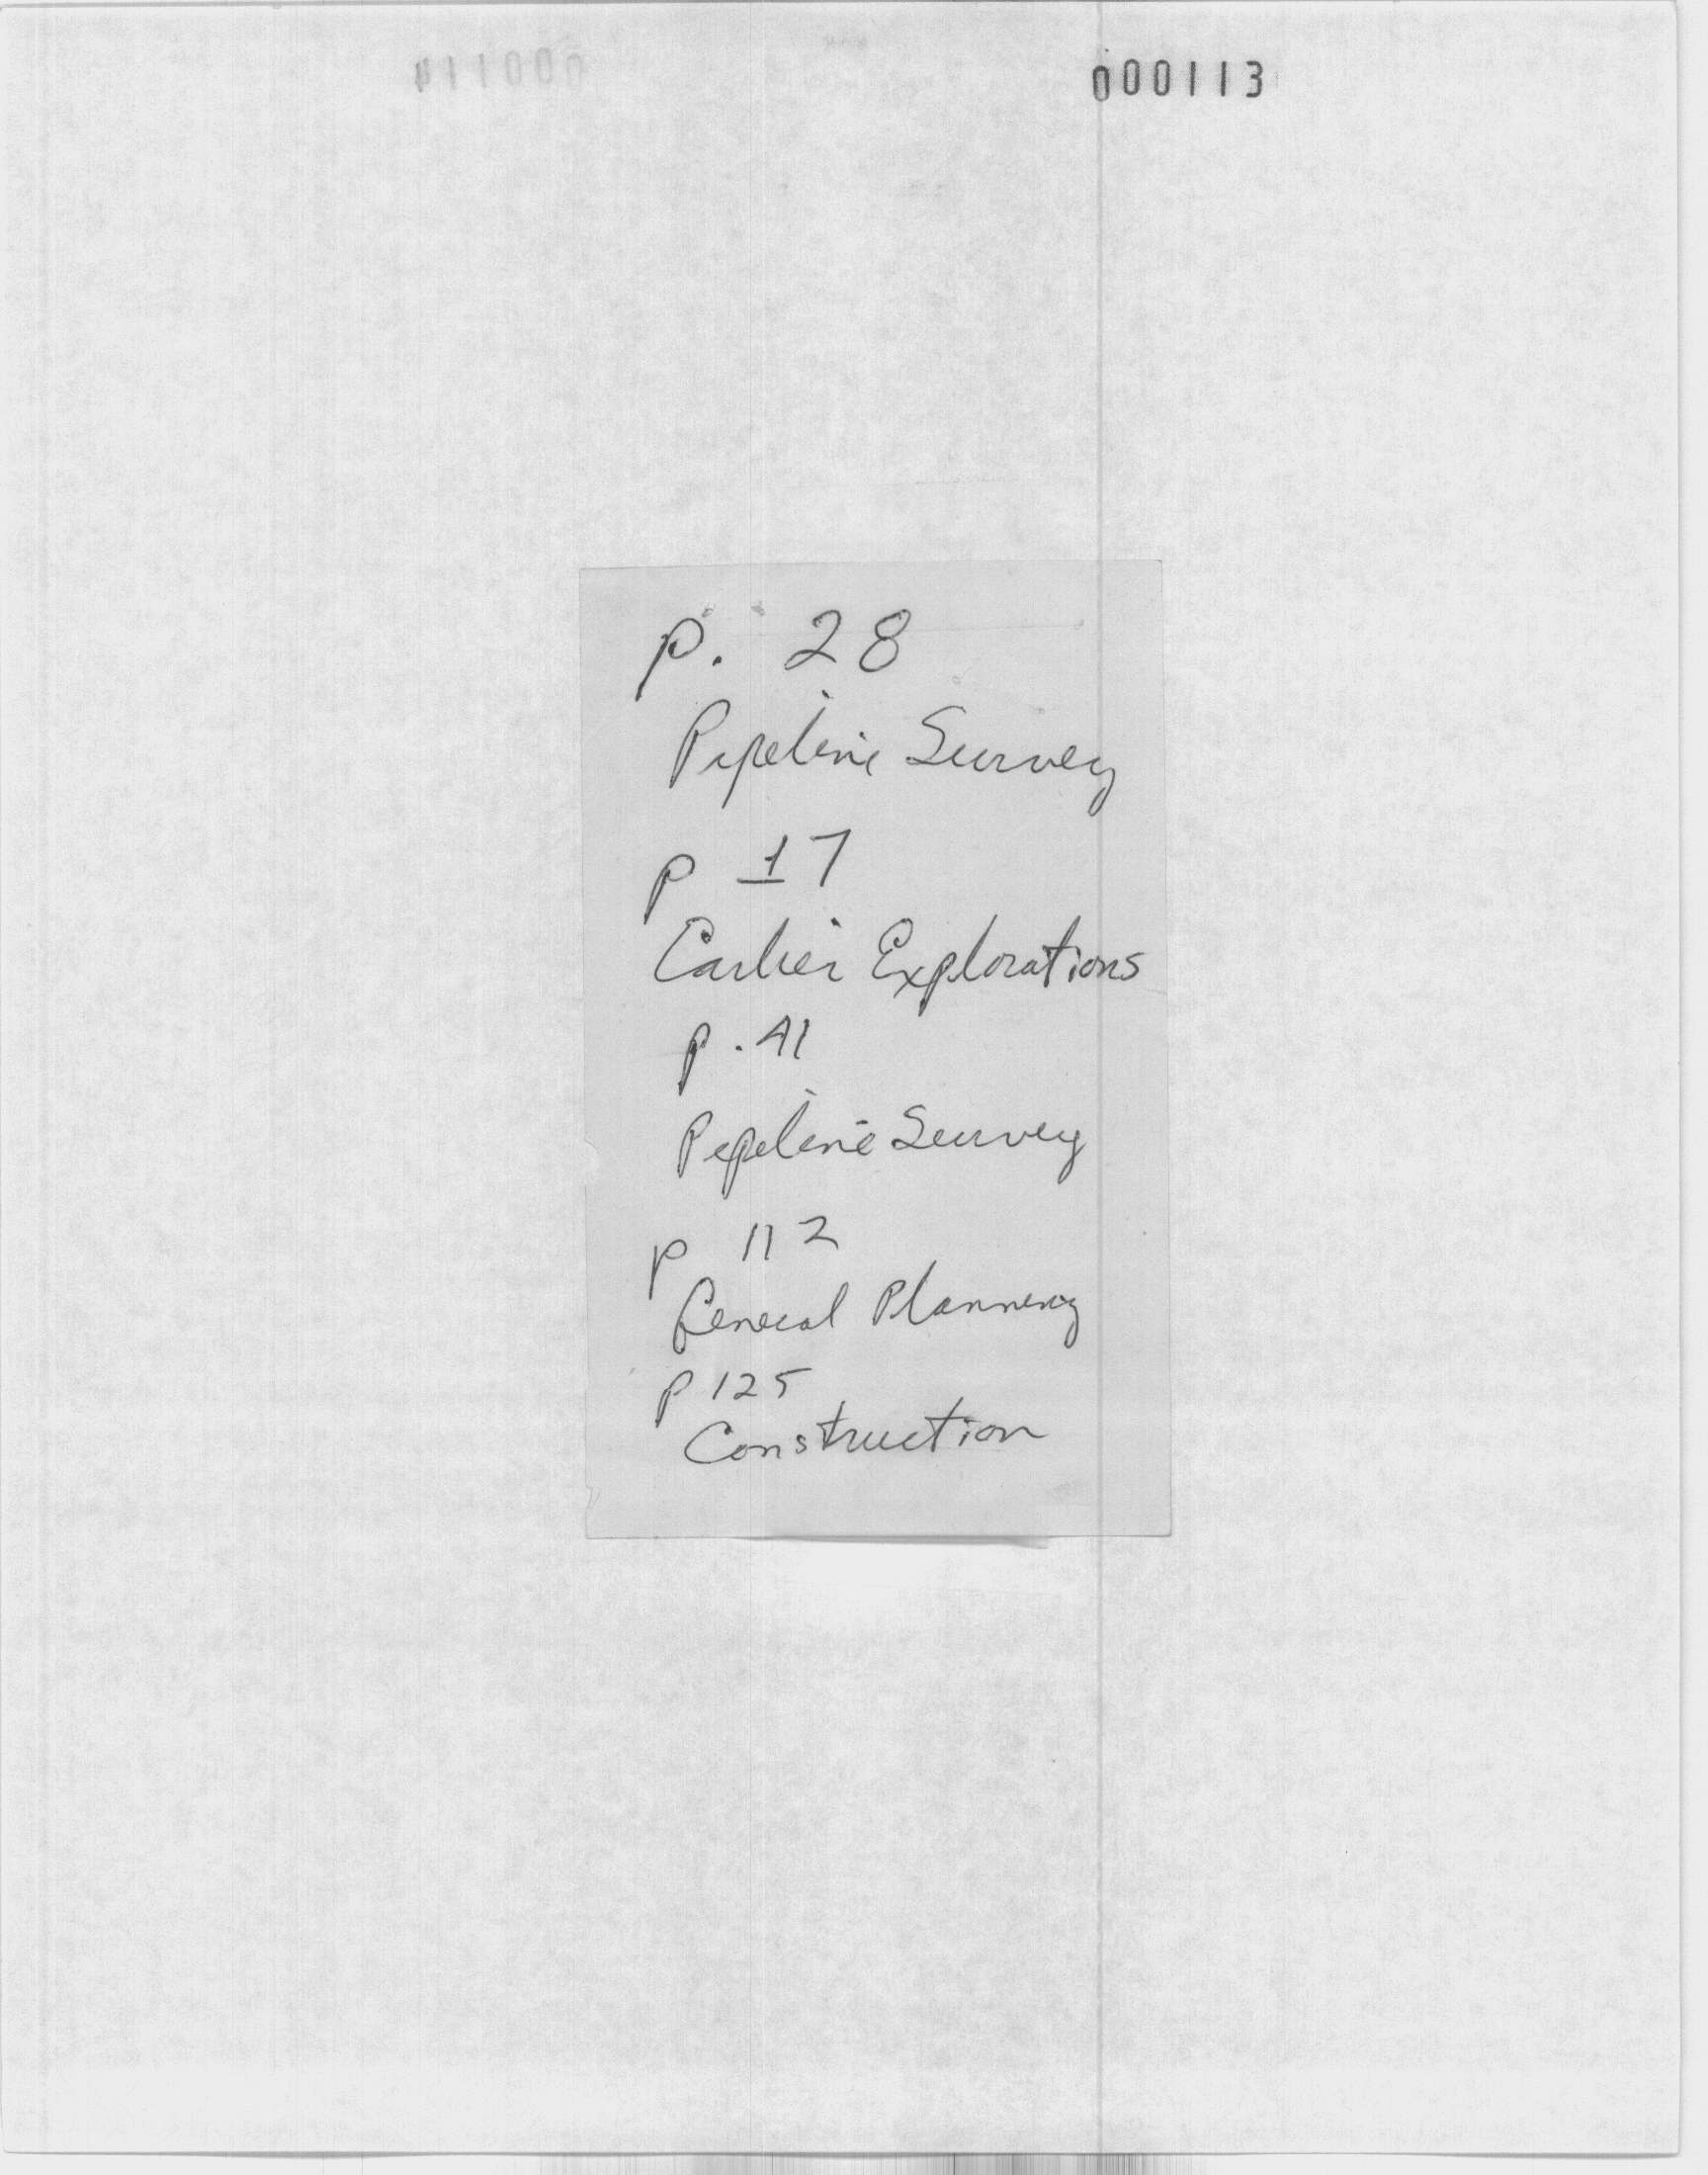 000113
p. 28
Pipeline Survey
p 17
Earlier Explorations
p. 41
Pipeline Survey
p 112
General Planning
p 125
Construction